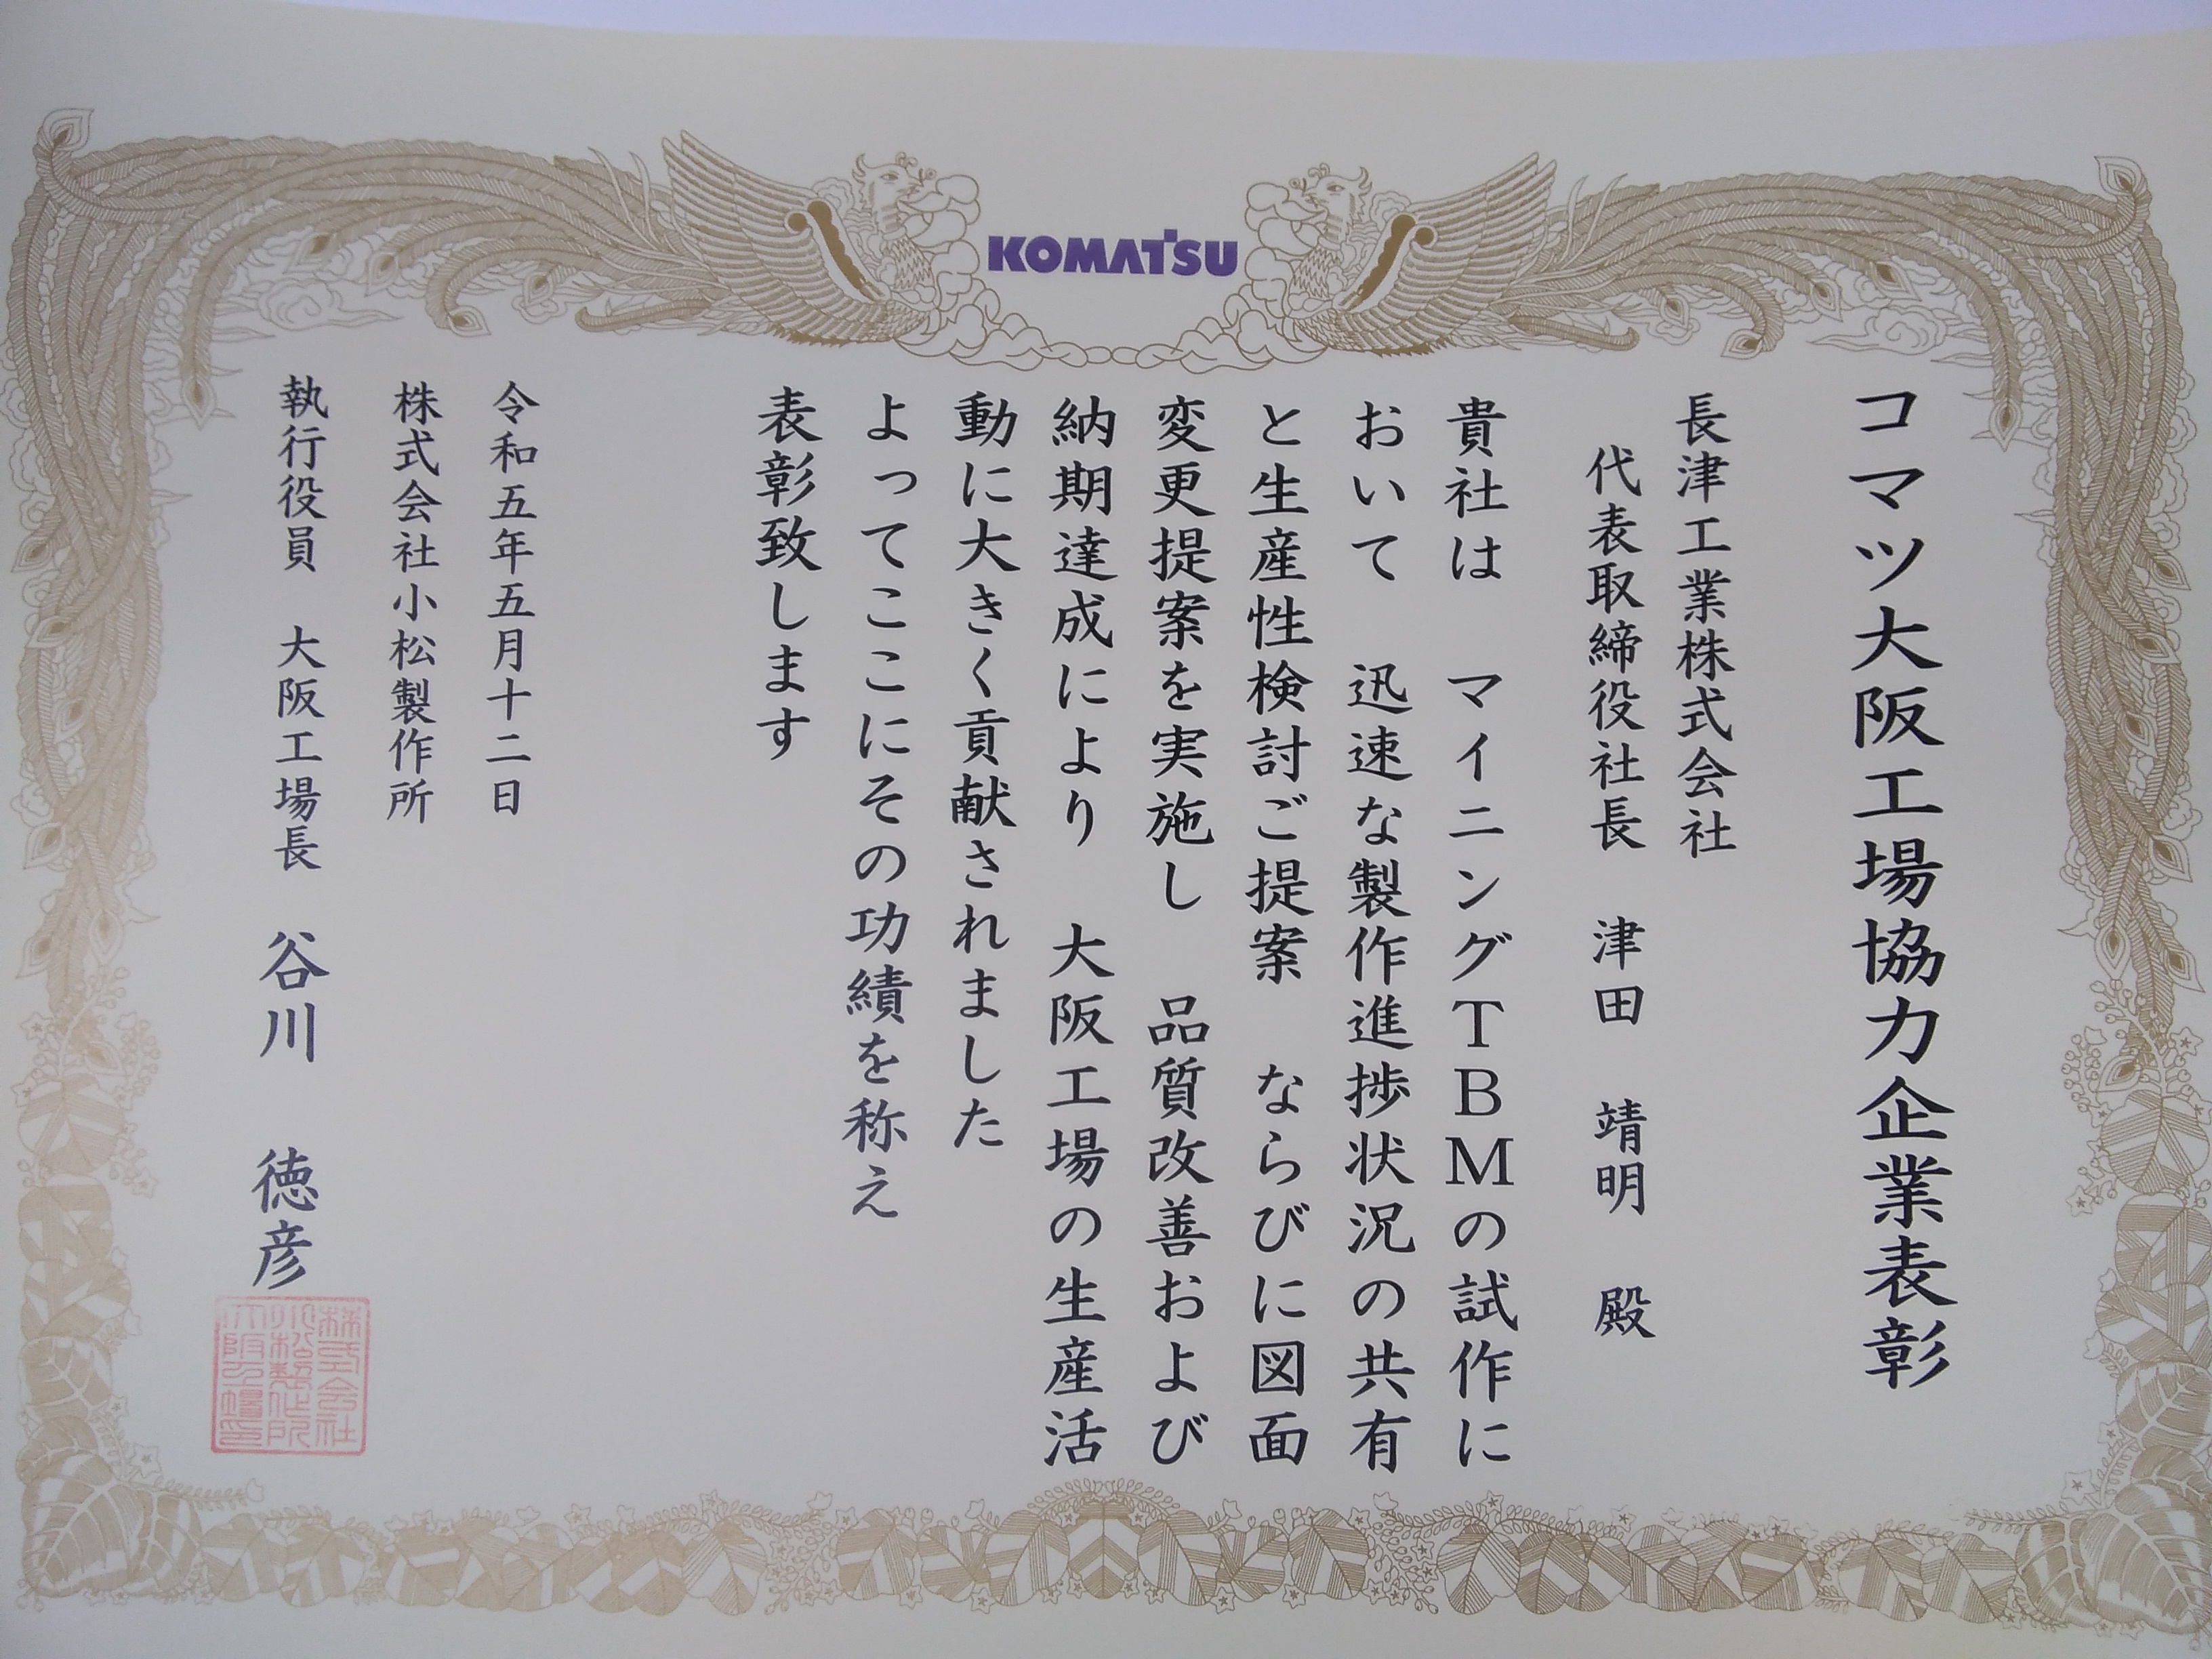 KOMATSU
コマツ大阪工場協力企業表彰
長津工業株式会社
代表取締役社長 津田 靖明 殿
貴社は マイニングTBMの試作に
おいて 迅速な製作進捗状況の共有
と生産性検討ご提案 ならびに図面
変更提案を実施し 品質改善および
納期達成により 大阪工場の生産活
動に大きく貢献されました
よってここにその功績を称え
表彰致します
令和五年五月十二日
株式会社小松製作所
執行役員 大阪工場長 谷川 徳彦
株式会社
小松製作所
大阪工場印